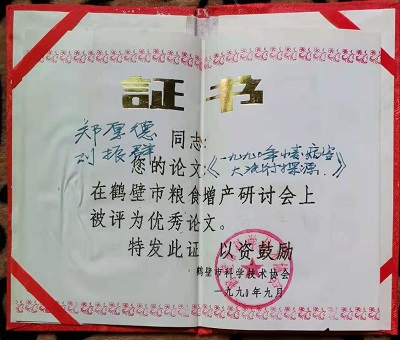 証书
郑厚德
刘振群 同志:
您的论文:《一九九〇年小麦病害
大流行探源》
在鹤壁市粮食增产研讨会上
被评为优秀论文。
特发此证 以资鼓励
鹤壁市科学技术协会
九九〇年九月